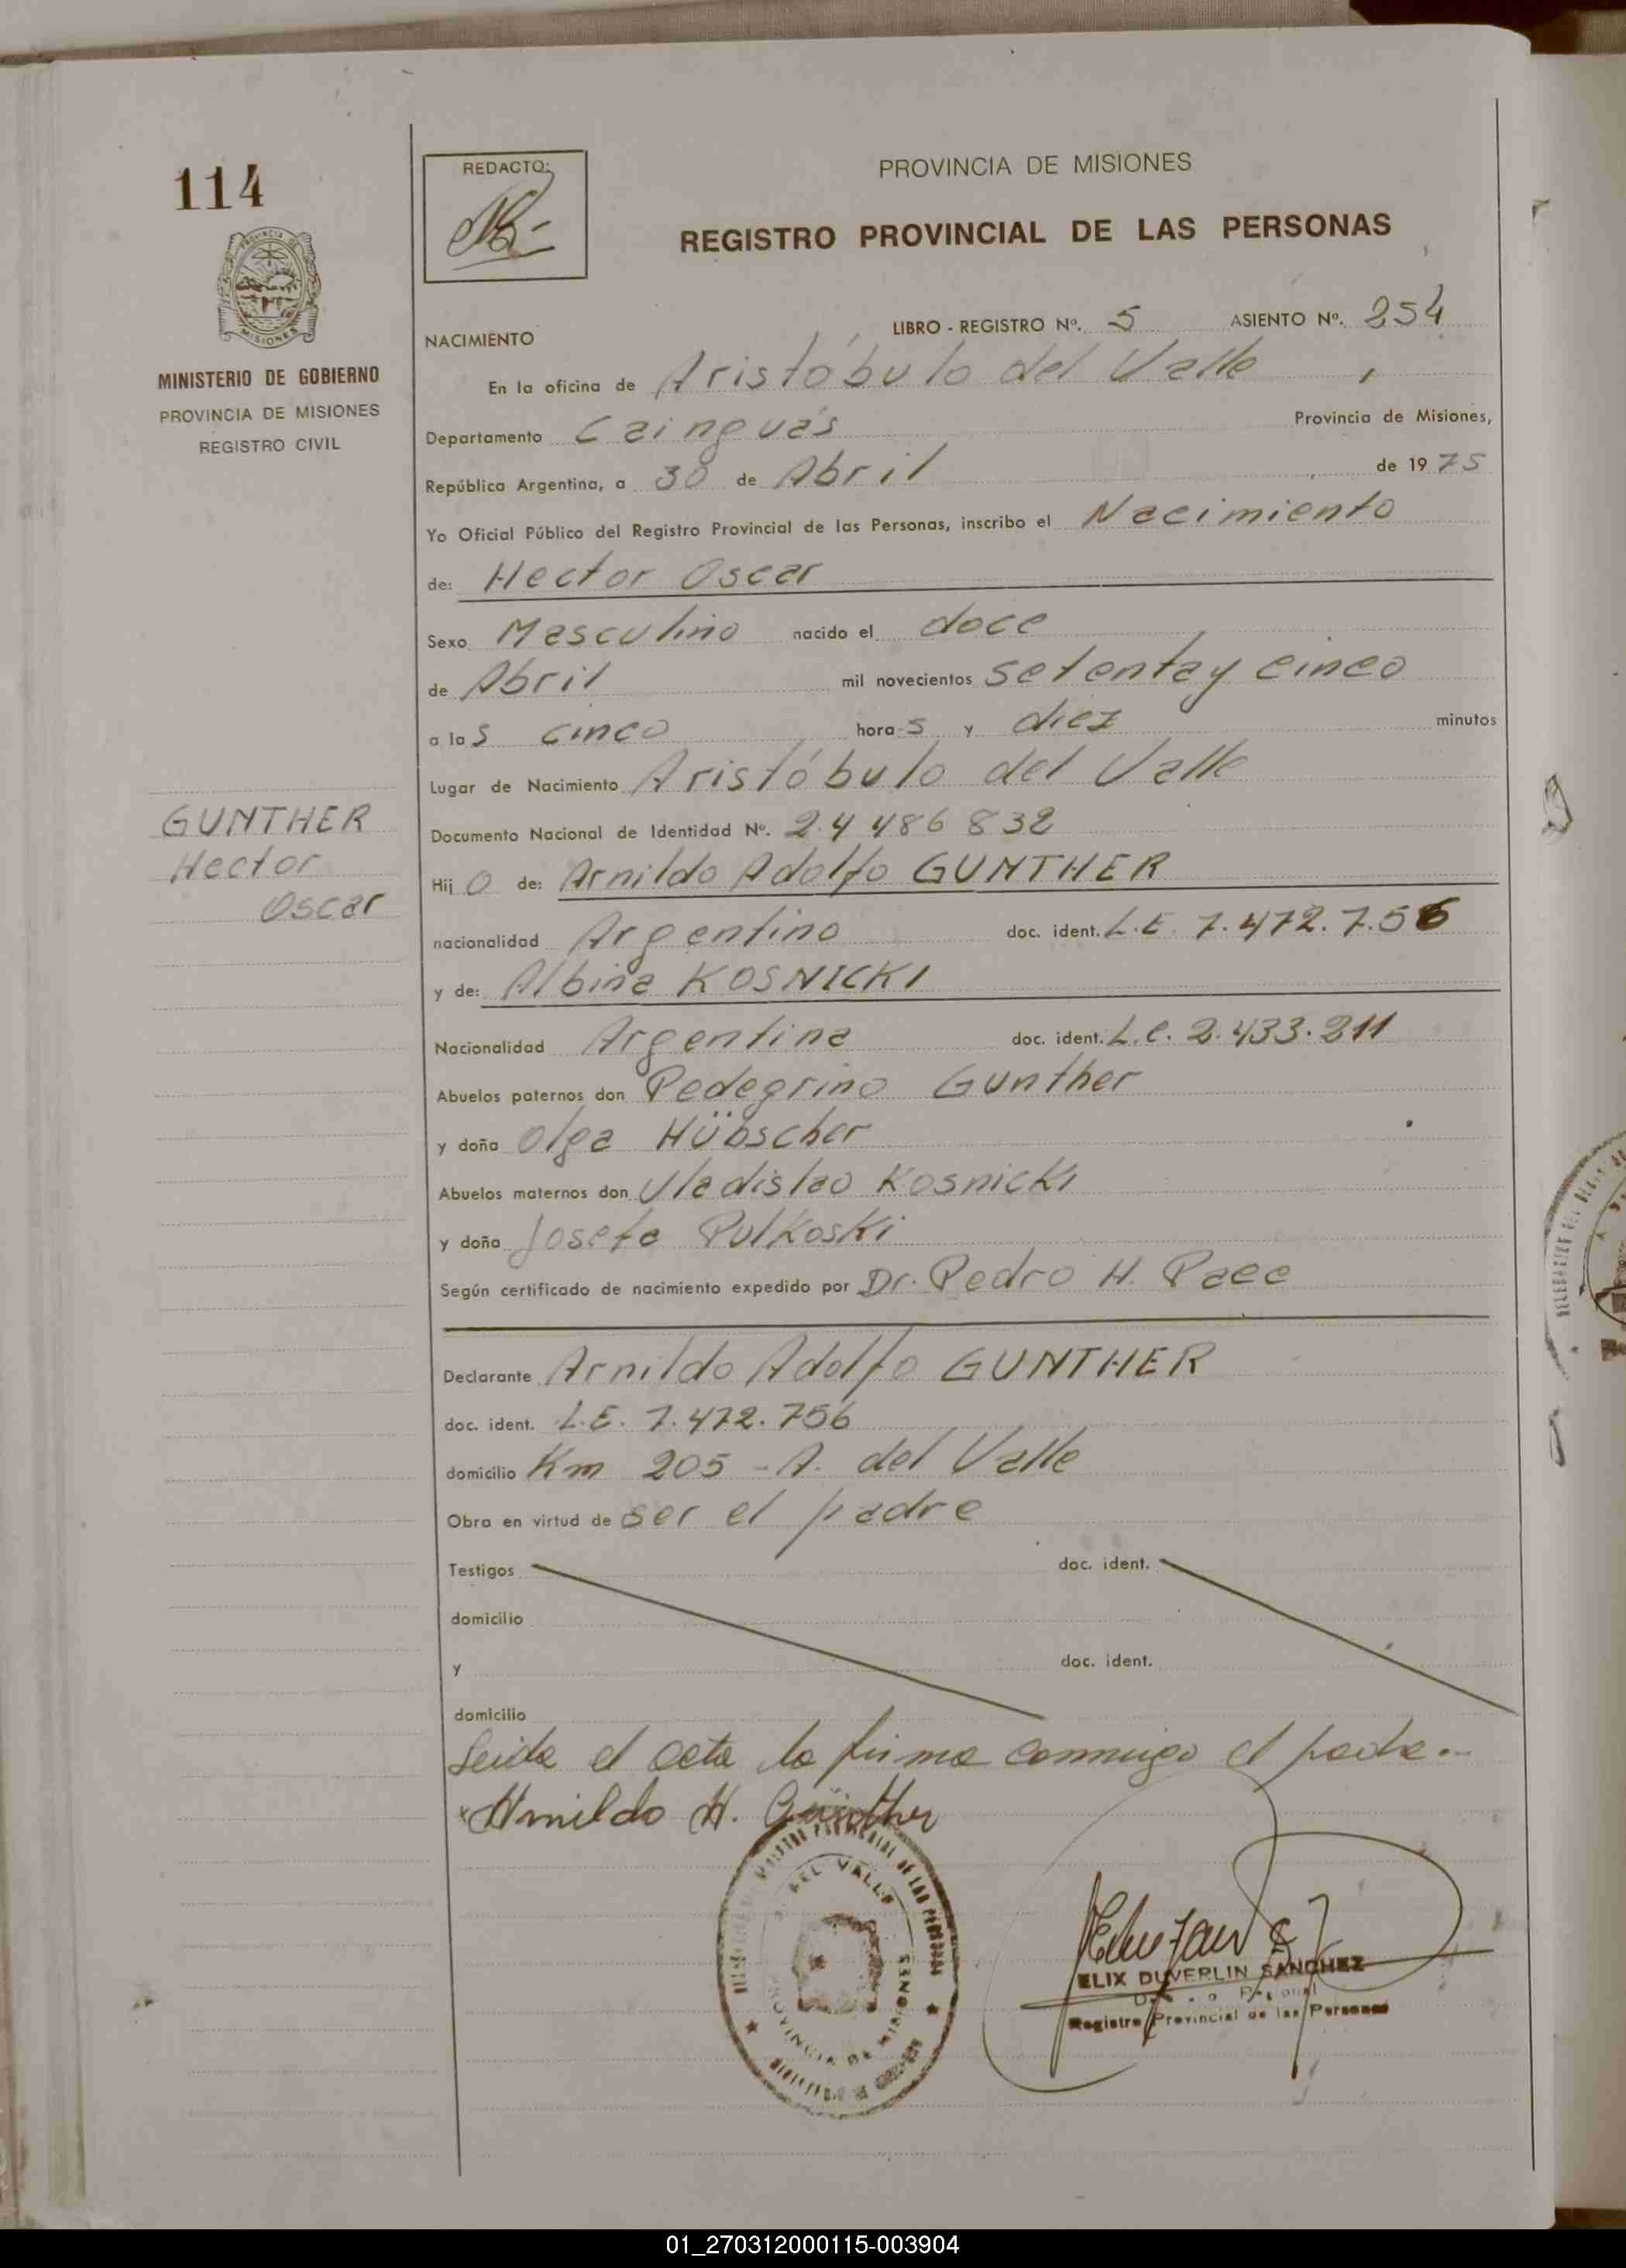 114
MINISTERIO DE GOBIERNO
PROVINCIA DE MISIONES
REGISTRO CIVIL
GUNTHER
Hector
Oscar
REDACTO:
PROVINCIA DE MISIONES
REGISTRO PROVINCIAL DE LAS PERSONAS
LIBRO - REGISTRO Nº. 5 ASIENTO Nº. 254
NACIMIENTO
En la oficina de Aristóbulo del Valle,
Departamento Cainguás Provincia de Misiones,
República Argentina, a 30 de Abril de 1975
Yo Oficial Público del Registro Provincial de las Personas, inscribo el Nacimiento
de: Hector Oscar
Sexo Masculino nacido el doce
de Abril mil novecientos setenta y cinco
a las cinco horas y diez minutos
Lugar de Nacimiento Aristóbulo del Valle
Documento Nacional de Identidad Nº. 24 486 832
Hijo de: Arnildo Adolfo GUNTHER
nacionalidad Argentino doc. ident. L.E. 7.472.756
y de: Albina KOSNICKI
Nacionalidad Argentina doc. ident. L.C. 2.433.211
Abuelos paternos don Pedegrino Gunther
y doña Olga Hübscher
Abuelos maternos don Vladislao Kosnicki
y doña Josefa Pulkoski
Según certificado de nacimiento expedido por Dr. Pedro H. Pace
Declarante Arnildo Adolfo GUNTHER
doc. ident. L.E. 7.472.756
domicilio Km 205 - A. del Valle
Obra en virtud de ser el padre
Testigos doc. ident.
domicilio
y doc. ident.
domicilio
Leida el acta la firma conmigo el padre.-
Arnildo A. Günther
DEL VALLE
PROVINCIA DE MISIONES
ELIX DUVERLIN SANCHEZ
Registro Provincial de las Personas
01_270312000115-003904